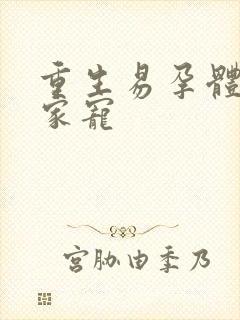 重生易孕體
家寵
宮胁由季乃